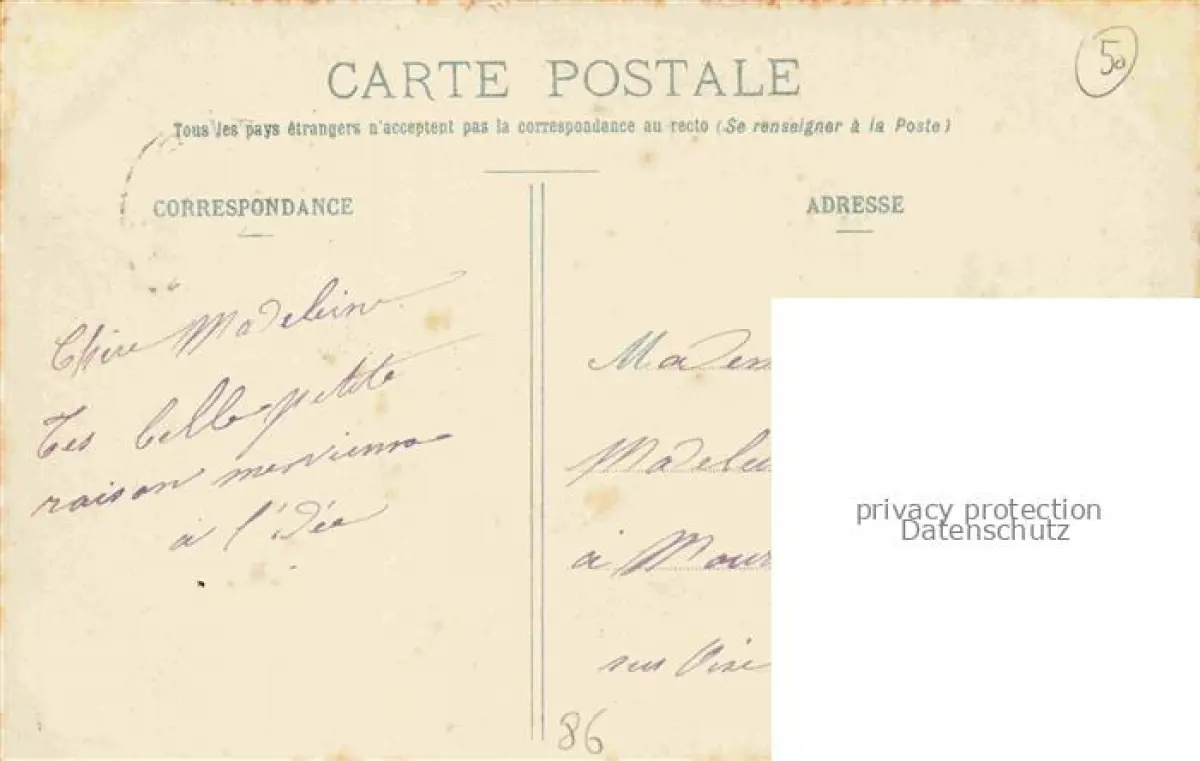 50
CARTE POSTALE
Tous les pays étrangers n'acceptent pas la correspondance au recto (Se renseigner à la Poste)
CORRESPONDANCE
ADRESSE
Chère Madeleine
Tes belle petite
raison me vienne
à l'idée
Madem
Madelei
à Mour
sur Oise
86
privacy protection
Datenschutz